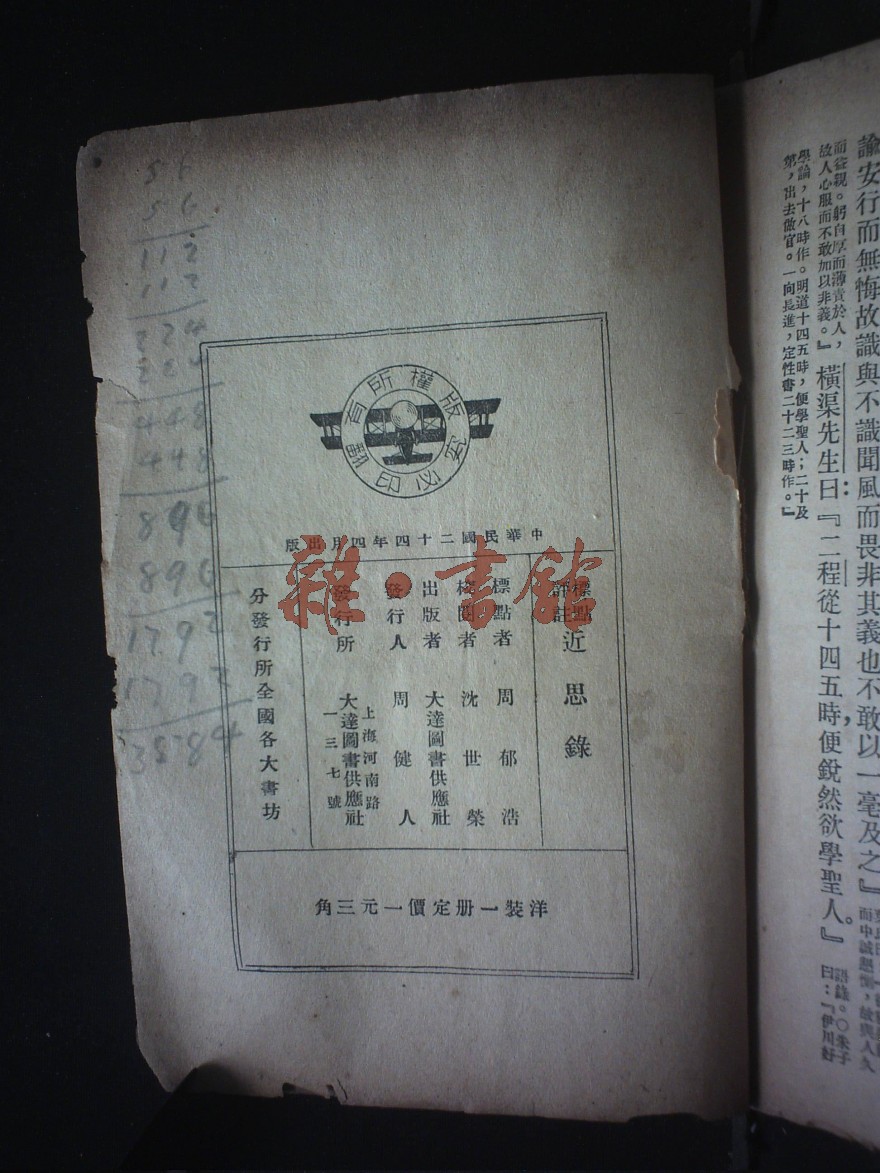 諭安行而無悔故識與不識聞風而畏非其義也不敢以一毫及之』
而中誠懇惻，故與人久
而益親。躬自厚而薄責於人，
故人心服而不敢加以非義。』
橫渠先生曰：『二程從十四五時，便銳然欲學聖人。』
語錄。○朱子
曰：『伊川好
學論，十八時作。明道十四五時，便學聖人；二十及
第，出去做官。一向長進，定性書二十二三時作。』
版權所有
翻印必究
中華民國二十四年四月出版
標點
評註
近思錄
標點者 周郁浩
校閱者 沈世榮
出版者 大達圖書供應社
發行人 周健人
發行所
上海河南路
大達圖書供應社
一三七號
分發行所全國各大書坊
洋裝一册定價一元三角
雜·書館
56
56
112
112
224
224
448
448
896
896
1792
1792
3584